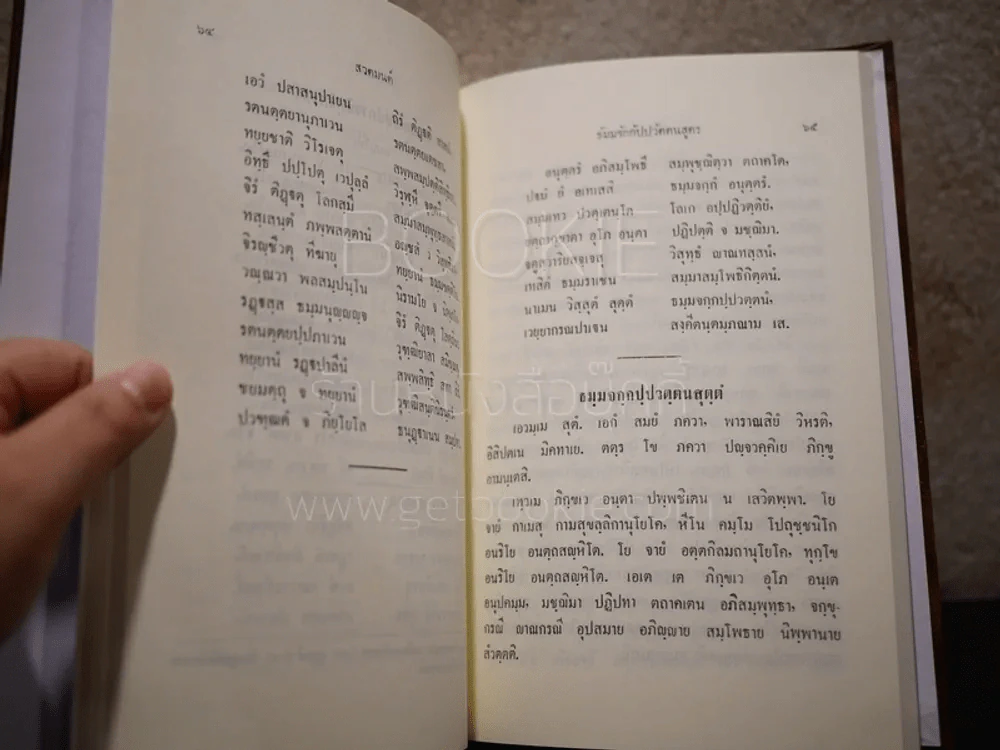 ๖๔
สวดมนต์
เอวํ ปสาสนุปาเยน
รตนตฺตยานุภาเวน รตนตฺตยเตชสา,
ทยฺยชาติ วิโรเจตุ
อิทฺธึ ปปฺโปตุ เวปุลฺลํ
จิรํ ติฏฺฐตุ โลกสฺมึ
ทสฺเสนฺตํ ภพฺพสตฺตานํ
จิรญฺชีวตุ ทีฆายุ
วณฺณวา พลสมฺปนฺโน นิรามโย จ
รฏฺฐสฺส ธมฺมนุญฺญฺจ จิรํ ติฏฺฐตุ
รตนตฺตยปฺปภาเวน
ทยฺยานํ รฏฺฐปาลีนํ
ชยมตฺถุ จ ทยฺยานํ
ปวฑฺฒตํ จ ภิยฺโยโส
ธัมมจักกัปปวัตตนสูตร ๖๕
อนุตฺตรํ อภิสมฺโพธึ สมฺพุชฺฌิตฺวา ตถาคโต,
ปฐมํ ยํ อเทเสสิ ธมฺมจกฺกํ อนุตฺตรํ.
สมฺมเทว ปวตฺเตนฺโต โลเก อปฺปฏิวตฺติยํ,
ยตฺถากฺขาตา อุโภ อนฺตา ปฏิปตฺติ จ มชฺฌิมา.
จตูสฺวาริยสจฺเจสุ วิสุทฺธํ ญาณทสฺสนํ.
เทสิตํ ธมฺมราเชน สมฺมาสมฺโพธิกิตฺตนํ.
นาเมน วิสฺสุตํ สุตฺตํ ธมฺมจกฺกปฺปวตฺตนํ,
เวยฺยากรณปาเฐน สงฺคีตนฺตมฺภณาม เส.
ธมฺมจกฺกปฺปวตฺตนสุตฺตํ
เอวมฺเม สุตํ. เอกํ สมยํ ภควา, พาราณสิยํ วิหรติ,
อิสิปตเน มิคทาเย. ตตฺร โข ภควา ปญฺจวคฺคิเย ภิกฺขู
อามนฺเตสิ.
เทฺวเม ภิกฺขเว อนฺตา ปพฺพชิเตน น เสวิตพฺพา. โย
จายํ กาเมสุ กามสุขลฺลิกานุโยโค, หีโน คมฺโม โปถุชฺชนิโก
อนริโย อนตฺถสญฺหิโต. โย จายํ อตฺตกิลมถานุโยโค, ทุกฺโข
อนริโย อนตฺถสญฺหิโต. เอเต เต ภิกฺขเว อุโภ อนฺเต
อนุปคมฺม, มชฺฌิมา ปฏิปทา ตถาคเตน อภิสมฺพุทฺธา, จกฺขุ-
กรณี ญาณกรณี อุปสมาย อภิญฺญาย สมฺโพธาย นิพฺพานาย
สํวตฺตติ.
BOOKIE
ร้านหนังสือบุ๊คกี้
www.getbookie.com